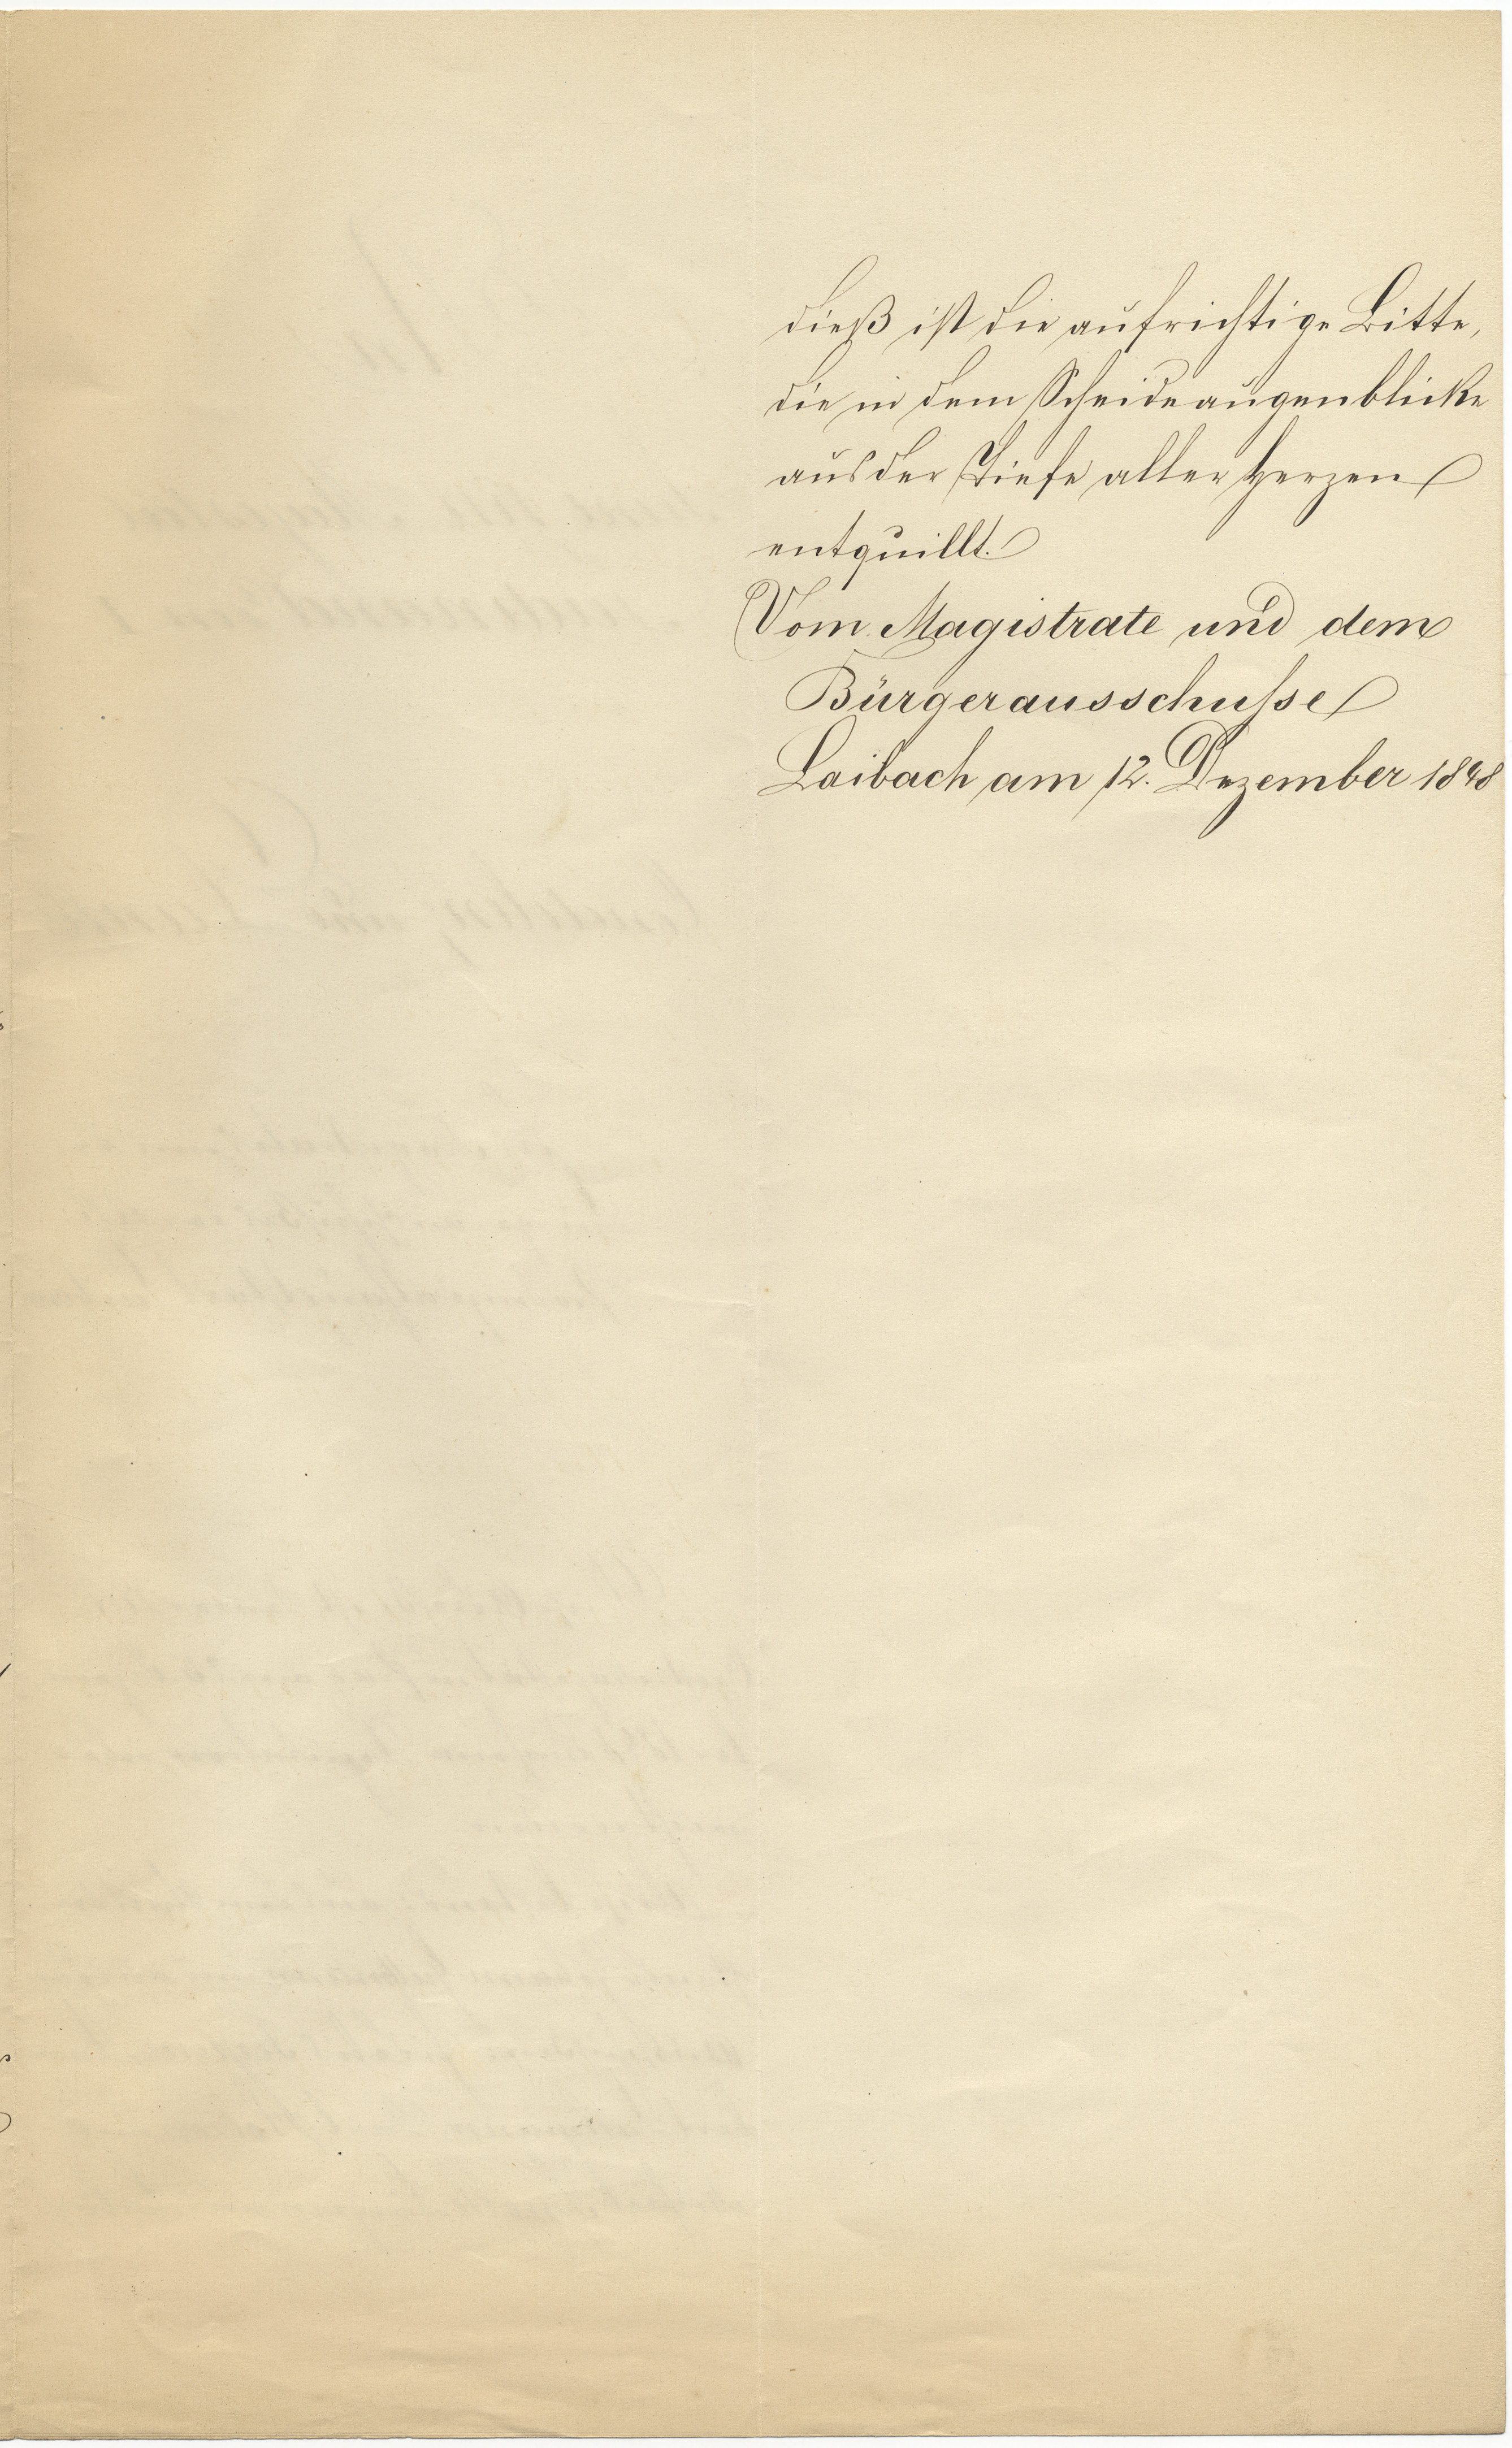 dieß ist die aufrichtige Bitte,
die in dem Scheideaugenblicke
aus der Tiefe aller Herzen
entquillt.
Vom Magistrate und dem
Bürgerausschuſse
Laibach am 12. Dezember 1848